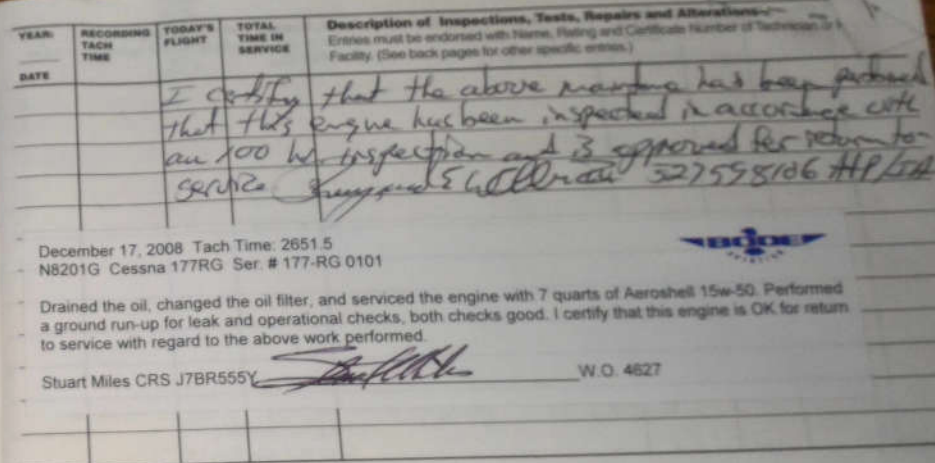 YEAR: RECORDING TACH TIME TODAY'S FLIGHT TOTAL TIME IN SERVICE Description of Inspections, Tests, Repairs and Alterations
Entries must be endorsed with Name, Rating and Certificate Number of Technician or
Facility. (See back pages for other specific entries.)
DATE
I certify that the above has been performed
that this engine has been inspected in accordance with
an 100 hr inspection and is approved for return to
service 527558106 AP/IA
December 17, 2008 Tach Time: 2651.5
N8201G Cessna 177RG Ser. # 177-RG 0101
BODE
AVIATION
Drained the oil, changed the oil filter, and serviced the engine with 7 quarts of Aeroshell 15w-50. Performed
a ground run-up for leak and operational checks, both checks good. I certify that this engine is OK for return
to service with regard to the above work performed.
Stuart Miles CRS J7BR555Y W.O. 4627